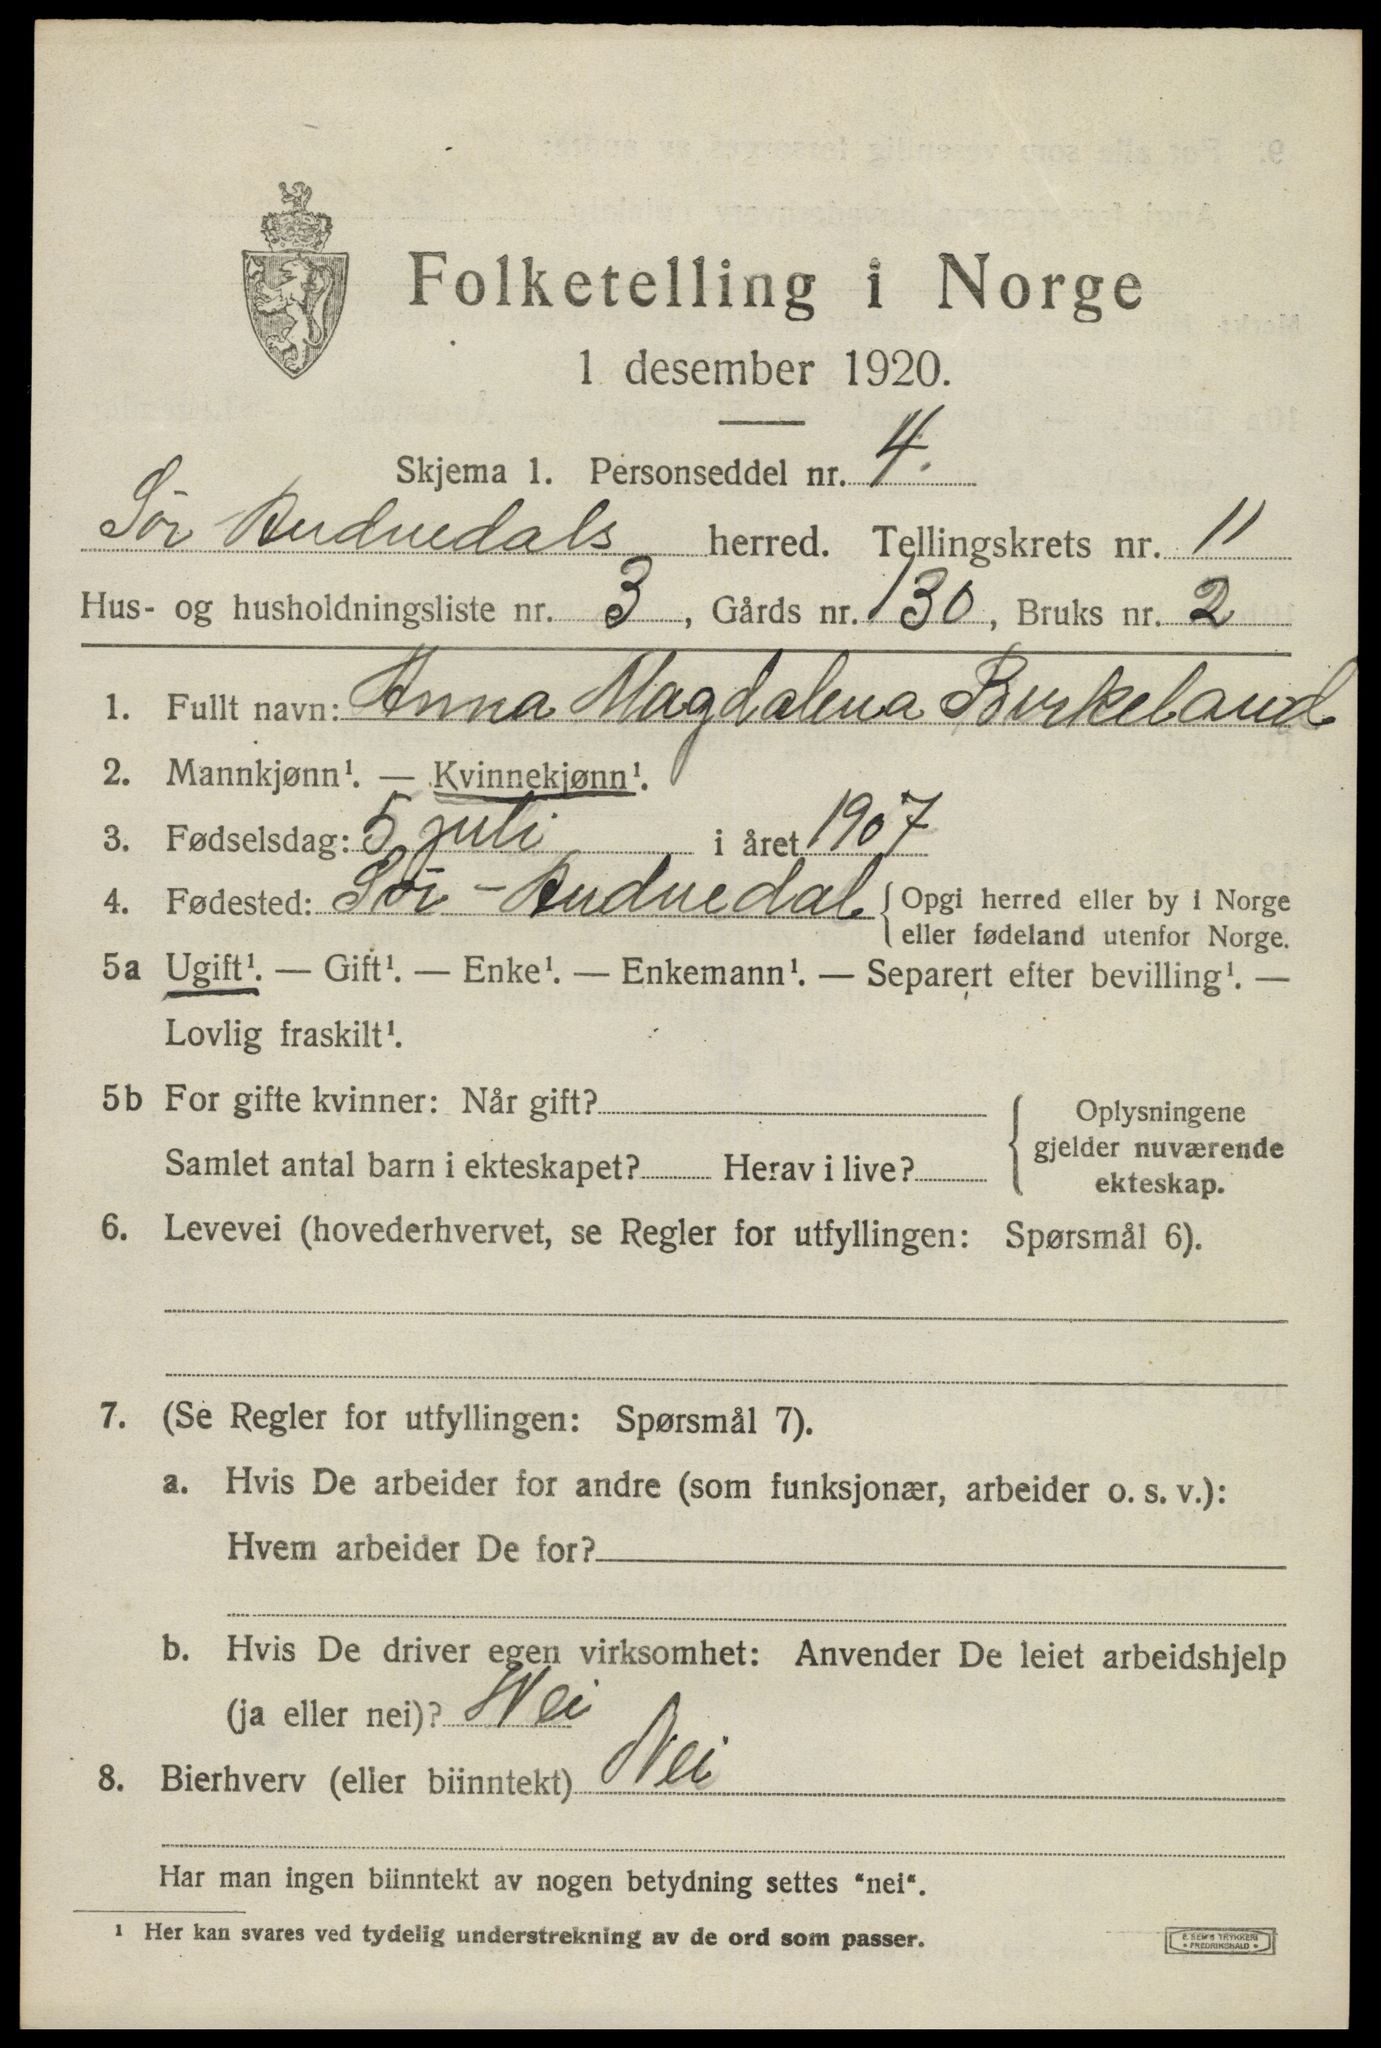 Folketelling i Norge
1 desember 1920.
Skjema 1. Personseddel nr. 4.
Sør Audnedals herred. Tellingskrets nr. 11
Hus- og husholdningsliste nr. 3, Gårds nr. 130, Bruks nr. 2
1. Fullt navn: Anna Magdalena Birkeland
2. Mannkjønn¹. — Kvinnekjønn¹.
3. Fødselsdag: 5 juli i året 1907
4. Fødested: Sør-Audnedal { Opgi herred eller by i Norge
eller fødeland utenfor Norge.
5a Ugift¹. — Gift¹. — Enke¹. — Enkemann¹. — Separert efter bevilling¹. —
Lovlig fraskilt¹.
5b For gifte kvinner: Når gift?
Samlet antal barn i ekteskapet? Herav i live?
{ Oplysningene
gjelder nuværende
ekteskap.
6. Levevei (hovederhvervet, se Regler for utfyllingen: Spørsmål 6).
7. (Se Regler for utfyllingen: Spørsmål 7).
a. Hvis De arbeider for andre (som funksjonær, arbeider o. s. v.):
Hvem arbeider De for?
b. Hvis De driver egen virksomhet: Anvender De leiet arbeidshjelp
(ja eller nei)? Nei
8. Bierhverv (eller biinntekt) Nei
Har man ingen biinntekt av nogen betydning settes "nei".
¹ Her kan svares ved tydelig understrekning av de ord som passer.
E. SEM'S TRYKKERI
• FREDRIKSHALD •